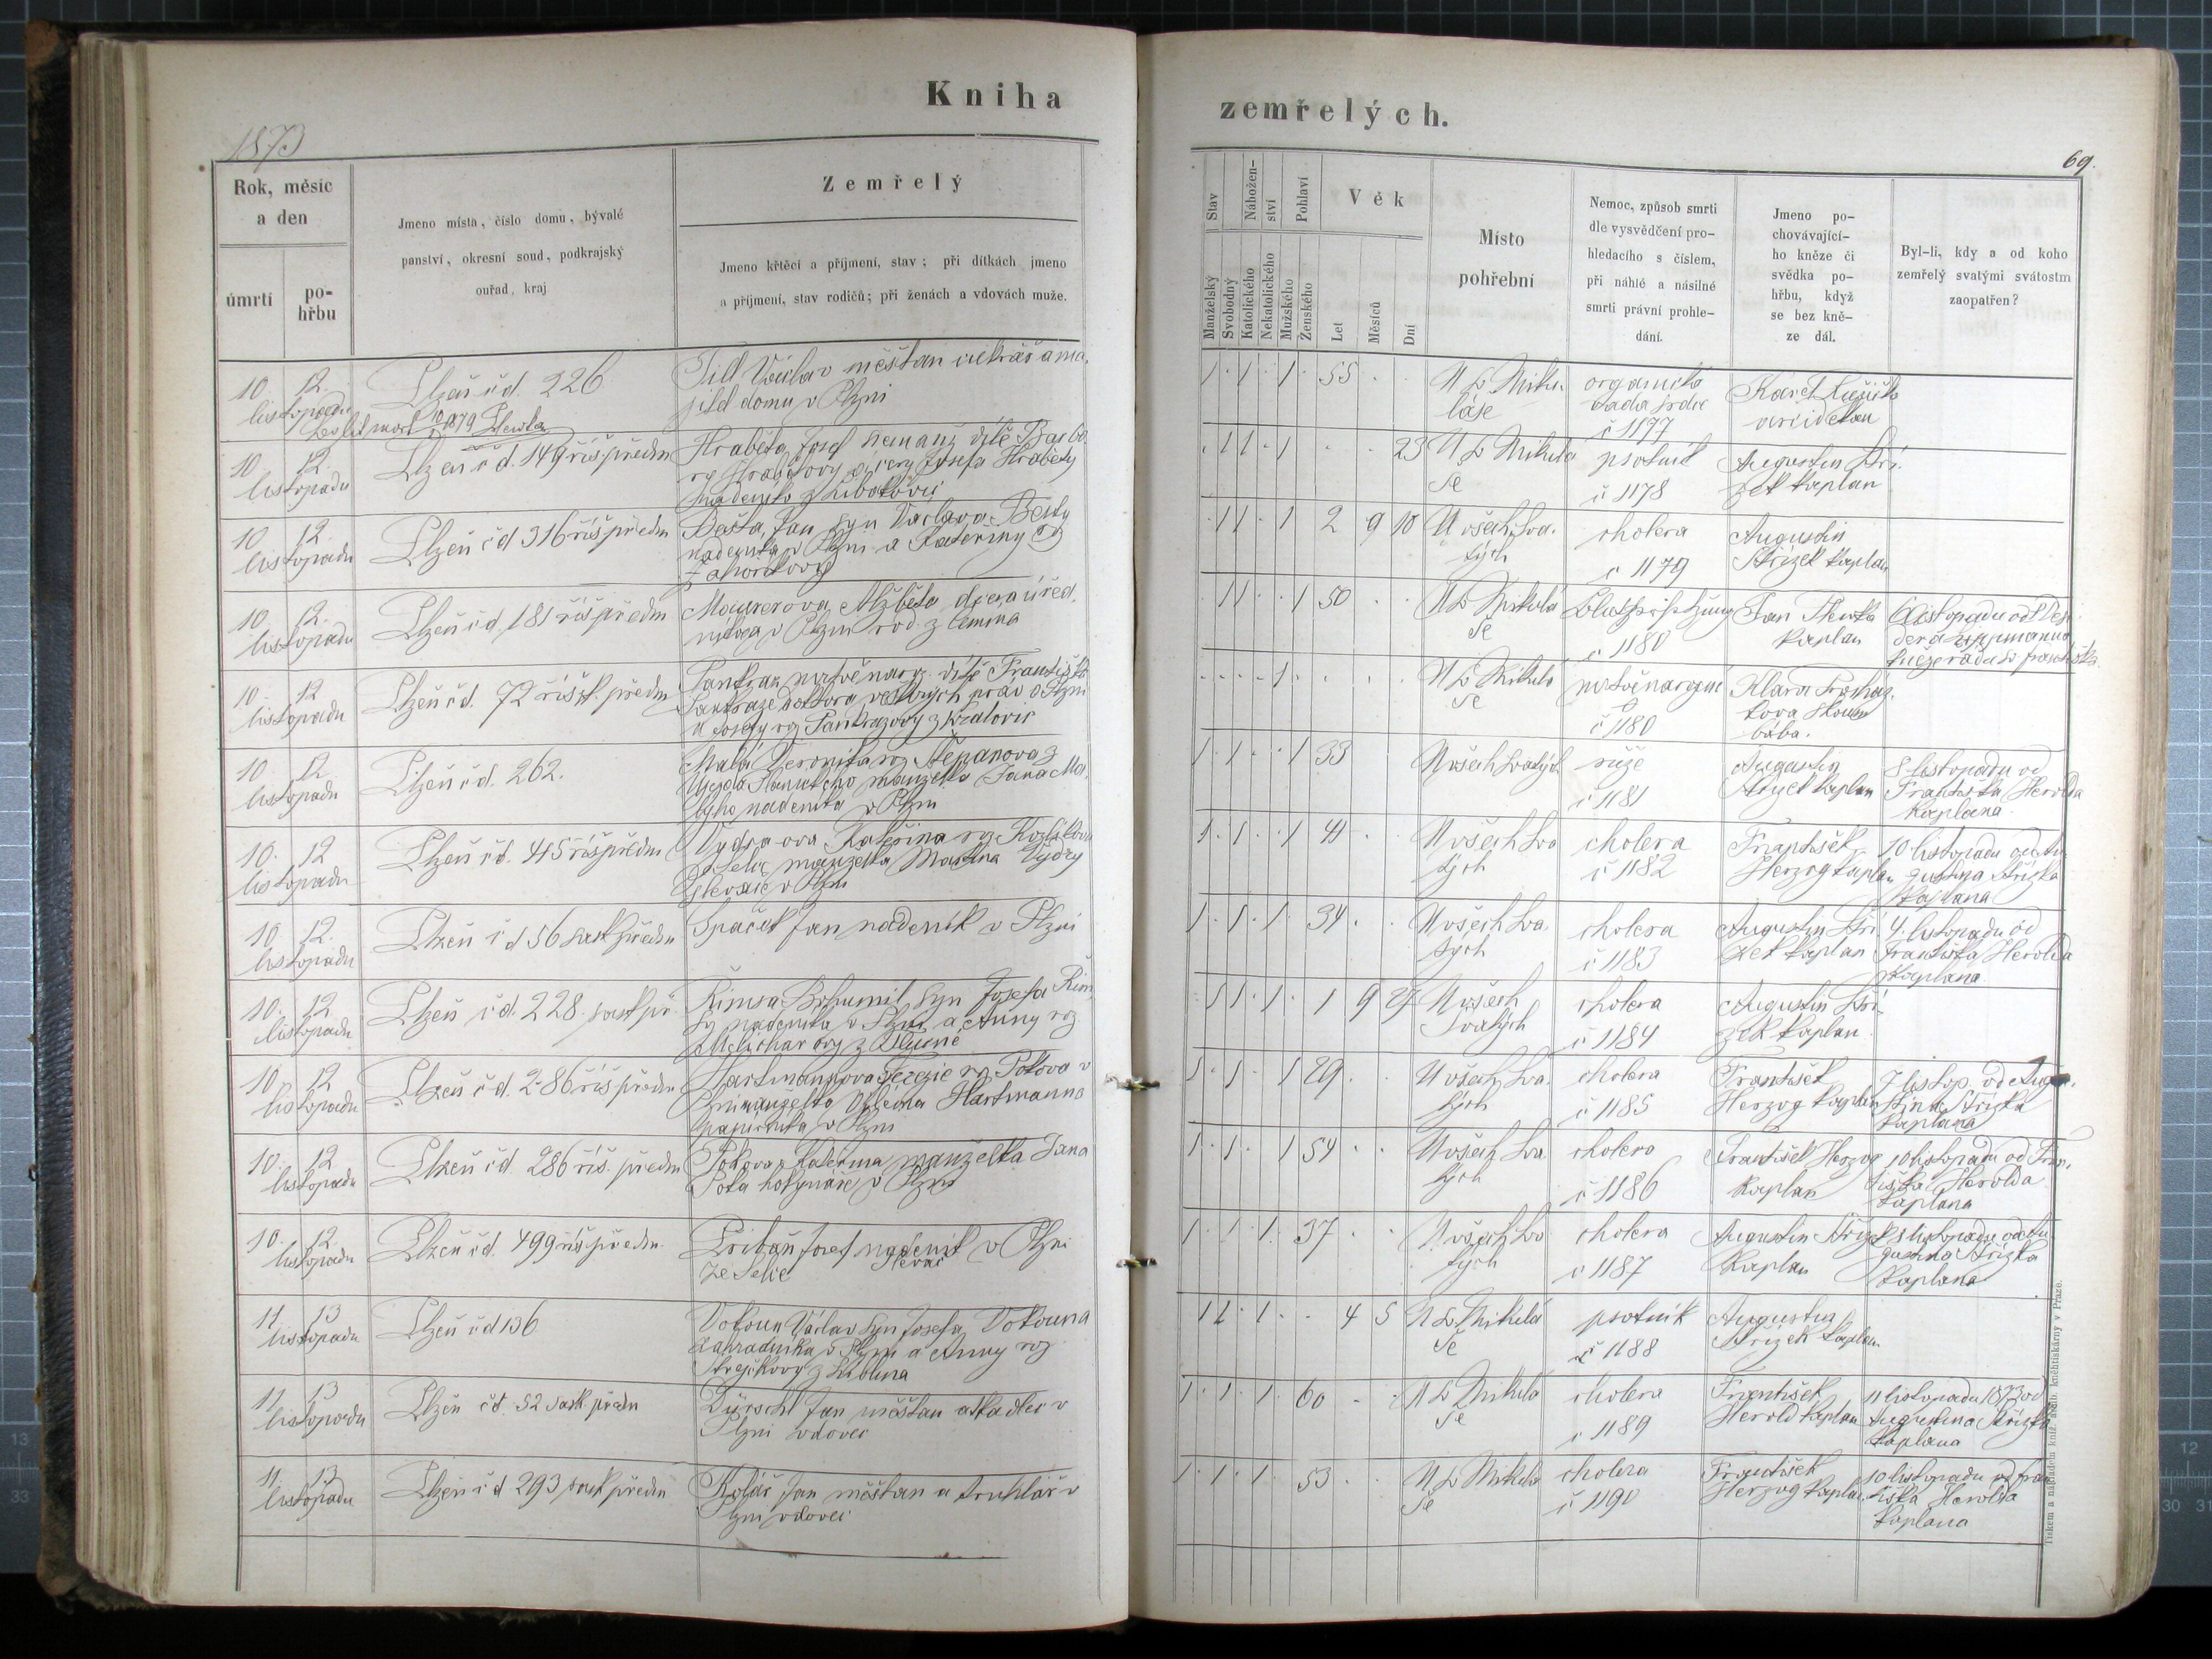 Kniha
zemřelých.
1873
69.
Rok, měsíc
a den
úmrtí
po-
hřbu
Jmeno místa, číslo domu, bývalé
panství, okresní soud, podkrajský
ouřad, kraj
Zemřelý
Jmeno křtěcí a příjmení, stav; při dítkách jmeno
a příjmení, stav rodičů; při ženách a vdovách muže.
Stav
Manželský
Svobodný
Nábožen-
ství
Katolického
Nekatolického
Pohlaví
Mužského
Ženského
Věk
Let
Měsíců
Dní
Místo
pohřební
Nemoc, způsob smrti
dle vysvědčení pro-
hledacího s číslem,
při náhlé a násilné
smrti právní prohle-
dání.
Jmeno po-
chovávající-
ho kněze či
svědka po-
hřbu, když
se bez kně-
ze dál.
Byl-li, kdy a od koho
zemřelý svatými svátostm
zaopatřen?
10. 12.
listopadu
Plzeň čd. 226
Till Václav měšťan
domu v Plzni
1 1 1 55
U Sv Miku-
láše
organická
vada srdce
č 1177
Karel
arciděkan
10 12.
listopadu
Plzeň čd. 149 říš předm
Hraběta Josef dítě
Josefa Hraběty
11 1 23
U Sv Mikulá
še
psotník
č 1178
Augustin Stří-
zek kaplan
10 12.
listopadu
Plzeň čd 316 říš předm
Bešta, Jan, syn Václava Bešty
nádeníka v Plzni a Kateřiny
11 1 2 9 10
U všech Sva-
tých
cholera
č 1179
Augustin
Střízek kaplan
10. 12.
listopadu
Plzeň čd. 181 říš předm
Alžběta dcera úřed.
níkova v Plzni
11 1 50
U Sv Mikulá
še
č 1180
Jan
kaplan
6 listopadu od
10. 12
listopadu
Plzeň čd. 72 říšsk. předm
Pankraz mrtvěnaroz. dítě Františka
Pankraze doktora veškerých práv v Plzni
a Josefy roz Pankrazovy z Kralovic
1
U Sv Mikulá
še
mrtvěnarozené
č 1180
Klára
bába.
10 12
listopadu
Plzeň čd. 262.
Malá Veronika roz Štěpanova z
manželka Jana Ma-
lýho nádeníka v Plzni
1 1 1 33
U všech Svatých
růže
č 1181
Augustin
Střízek kaplan
8 listopadu od
Františka Herolda
Kaplana
10. 12
listopadu
Plzeň čd. 45 říš předm
Vydrova Kateřina roz
manželka Martina Vydry
slevače v Plzni
1 1 1 41
U všech Sva
tých
cholera
č 1182
František
Herzog kaplan
10 listopadu od Au
gustina Střízka
Kaplana
10. 12.
listopadu
Plzeň čd 56 Sask předm
Špaček Jan nádeník v Plzni
1 1 1 34
U všech Sva.
tých
cholera
č 1183
Augustin Stří
zek kaplan
4. listopadu od
Františka Herolda
Kaplana
10. 12.
listopadu
Plzeň čd. 228. sask př.
Rimsa Bohumil, syn Josefa Rim
sy nádeníka v Plzni a Anny roz
11 1 1 9 27
U všech
Svatých
cholera
č 1184
Augustin Stří-
zek kaplan
10. 12
listopadu
Plzeň čd. 286 říš předm
Hartmannova Terezie roz Pokova v
Plzni manželka Viléma Hartmanna
papírníka v Plzni
1 1 1 29.
U všech Sva.
tých
cholera
č 1185
František
Herzog kaplan
7 listop. od Augu-
stina Střízka
kaplana
10. 12
listopadu
Plzeň čd. 286 říš. předm
Pokova Kateřina manželka Jana
Poka v Plzni
1 1 1 54
U všech Sva
tých
cholera
č 1186
František Herzog
kaplan
10 listopadu od Fran.
tiška Herolda
Kaplana
10. 12.
listopadu
Plzeň čd. 499 říš předm.
Josef nádeník v Plzni
slevač
1 1 1 37
U všech Sva
tých
cholera
č 1187
Augustin Střízek
kaplan
8 listopadu od Au
gustina Střízka
kaplana
11 13
listopadu
Plzeň čd 136
Vokoun Václav syn Josefa Vokouna
zahradníka v Plzni a Anny roz
11 1 4 5
U Sv Mikulá
še
psotník
č 1188
Augustin
Střízek kaplan
11 13
listopadu
Plzeň čd 52 sask předm
Jan měšťan a tkadlec v
Plzni vdovec
1 1 1 60
U Sv Mikulá
še
cholera
č 1189
František
Herold kaplan
11 listopadu 1873 od
Augustina Střízka
Kaplana
11. 13
listopadu
Plzeň čd 293 sask předm
Kolář Jan měšťan a truhlář v
Plzni vdovec
1 1 1 53
U Sv Mikulá
še
cholera
č 1190
František
Herzog kaplan
10 listopadu od Fran
tiška Herolda
Kaplana